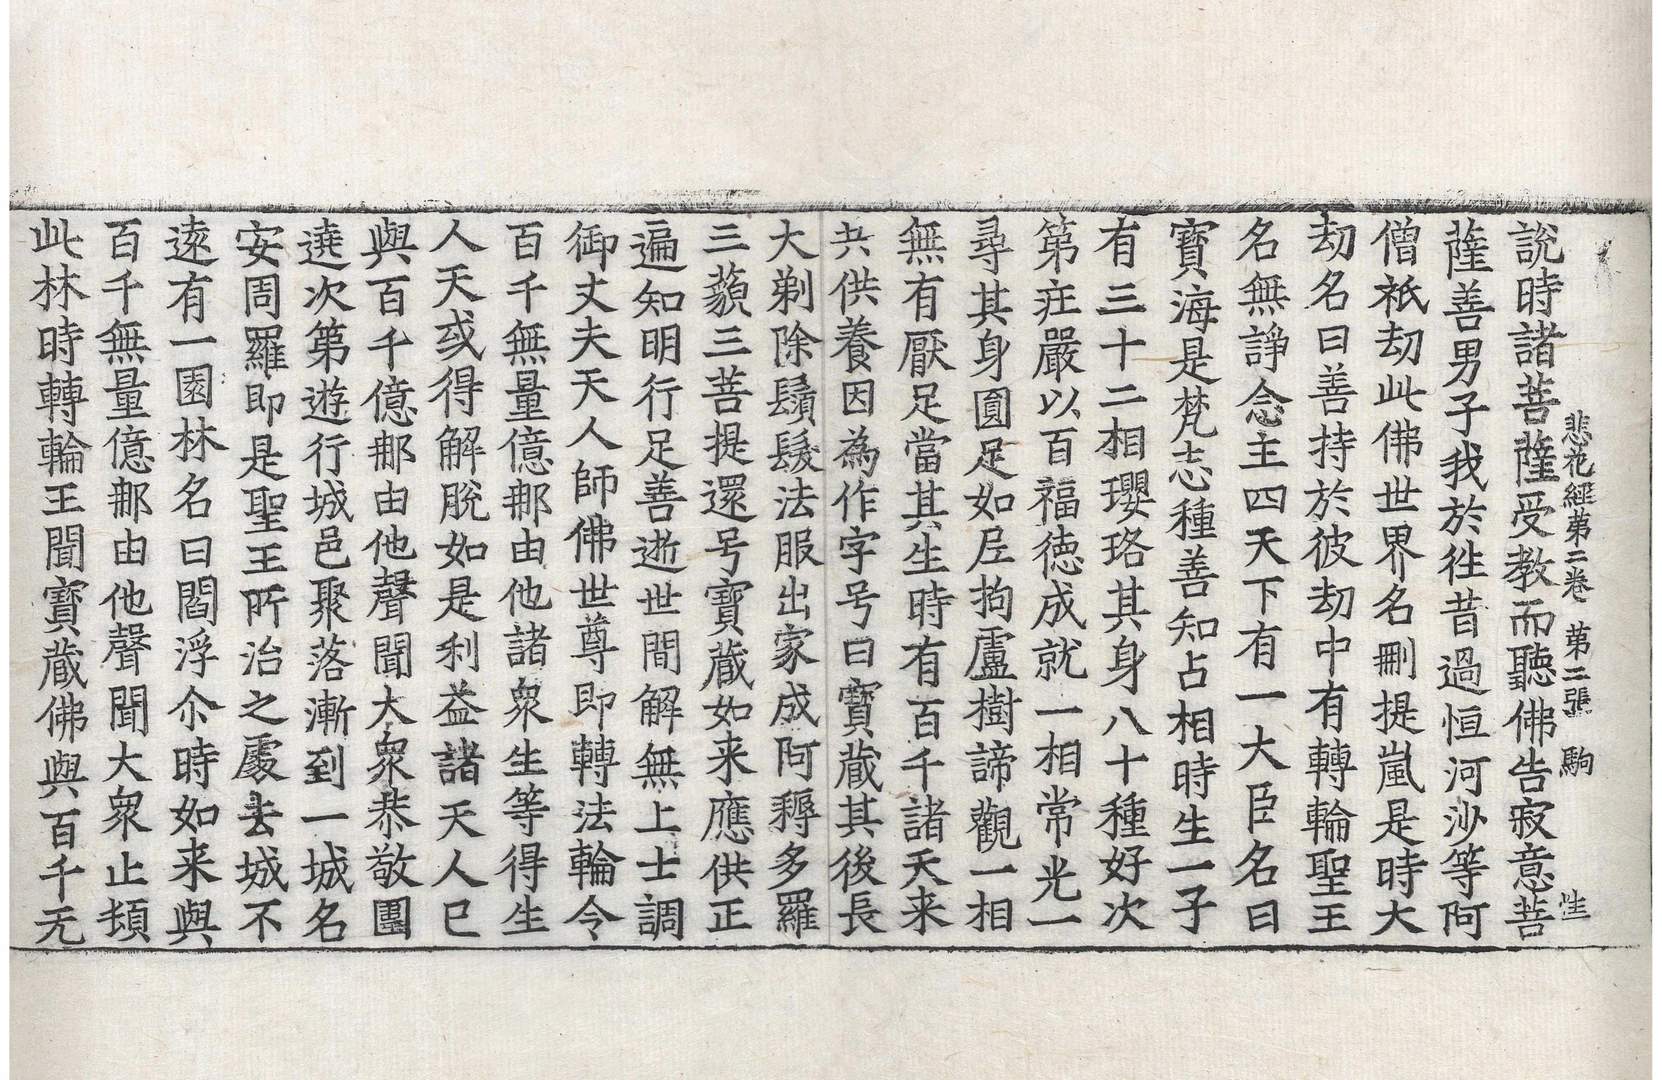 悲花經第二卷 第三張 駒 性
說時諸菩薩受教而聽佛告寂意菩
薩善男子我於往昔過恒河沙等阿
僧祇劫此佛世界名刪提嵐是時大
劫名曰善持於彼劫中有轉輪聖王
名無諍念主四天下有一大臣名曰
寶海是梵志種善知占相時生一子
有三十二相瓔珞其身八十種好次
第莊嚴以百福德成就一相常光一
尋其身圓足如尼拘盧樹諦觀一相
無有厭足當其生時有百千諸天来
共供養因為作字号曰寶蔵其後長
大剃除鬚髮法服出家成阿耨多羅
三藐三菩提還号寶蔵如来應供正
遍知明行足善逝世間解無上士調
御丈夫天人師佛世尊即轉法輪令
百千無量億那由他諸衆生等得生
人天或得解脫如是利益諸天人已
與百千億那由他聲聞大衆恭敬圍
遶次第遊行城邑聚落漸到一城名
安周羅即是聖王所治之處去城不
遠有一園林名曰閻浮尒時如来與
百千無量億那由他聲聞大衆止頓
此林時轉輪王聞寶蔵佛與百千无